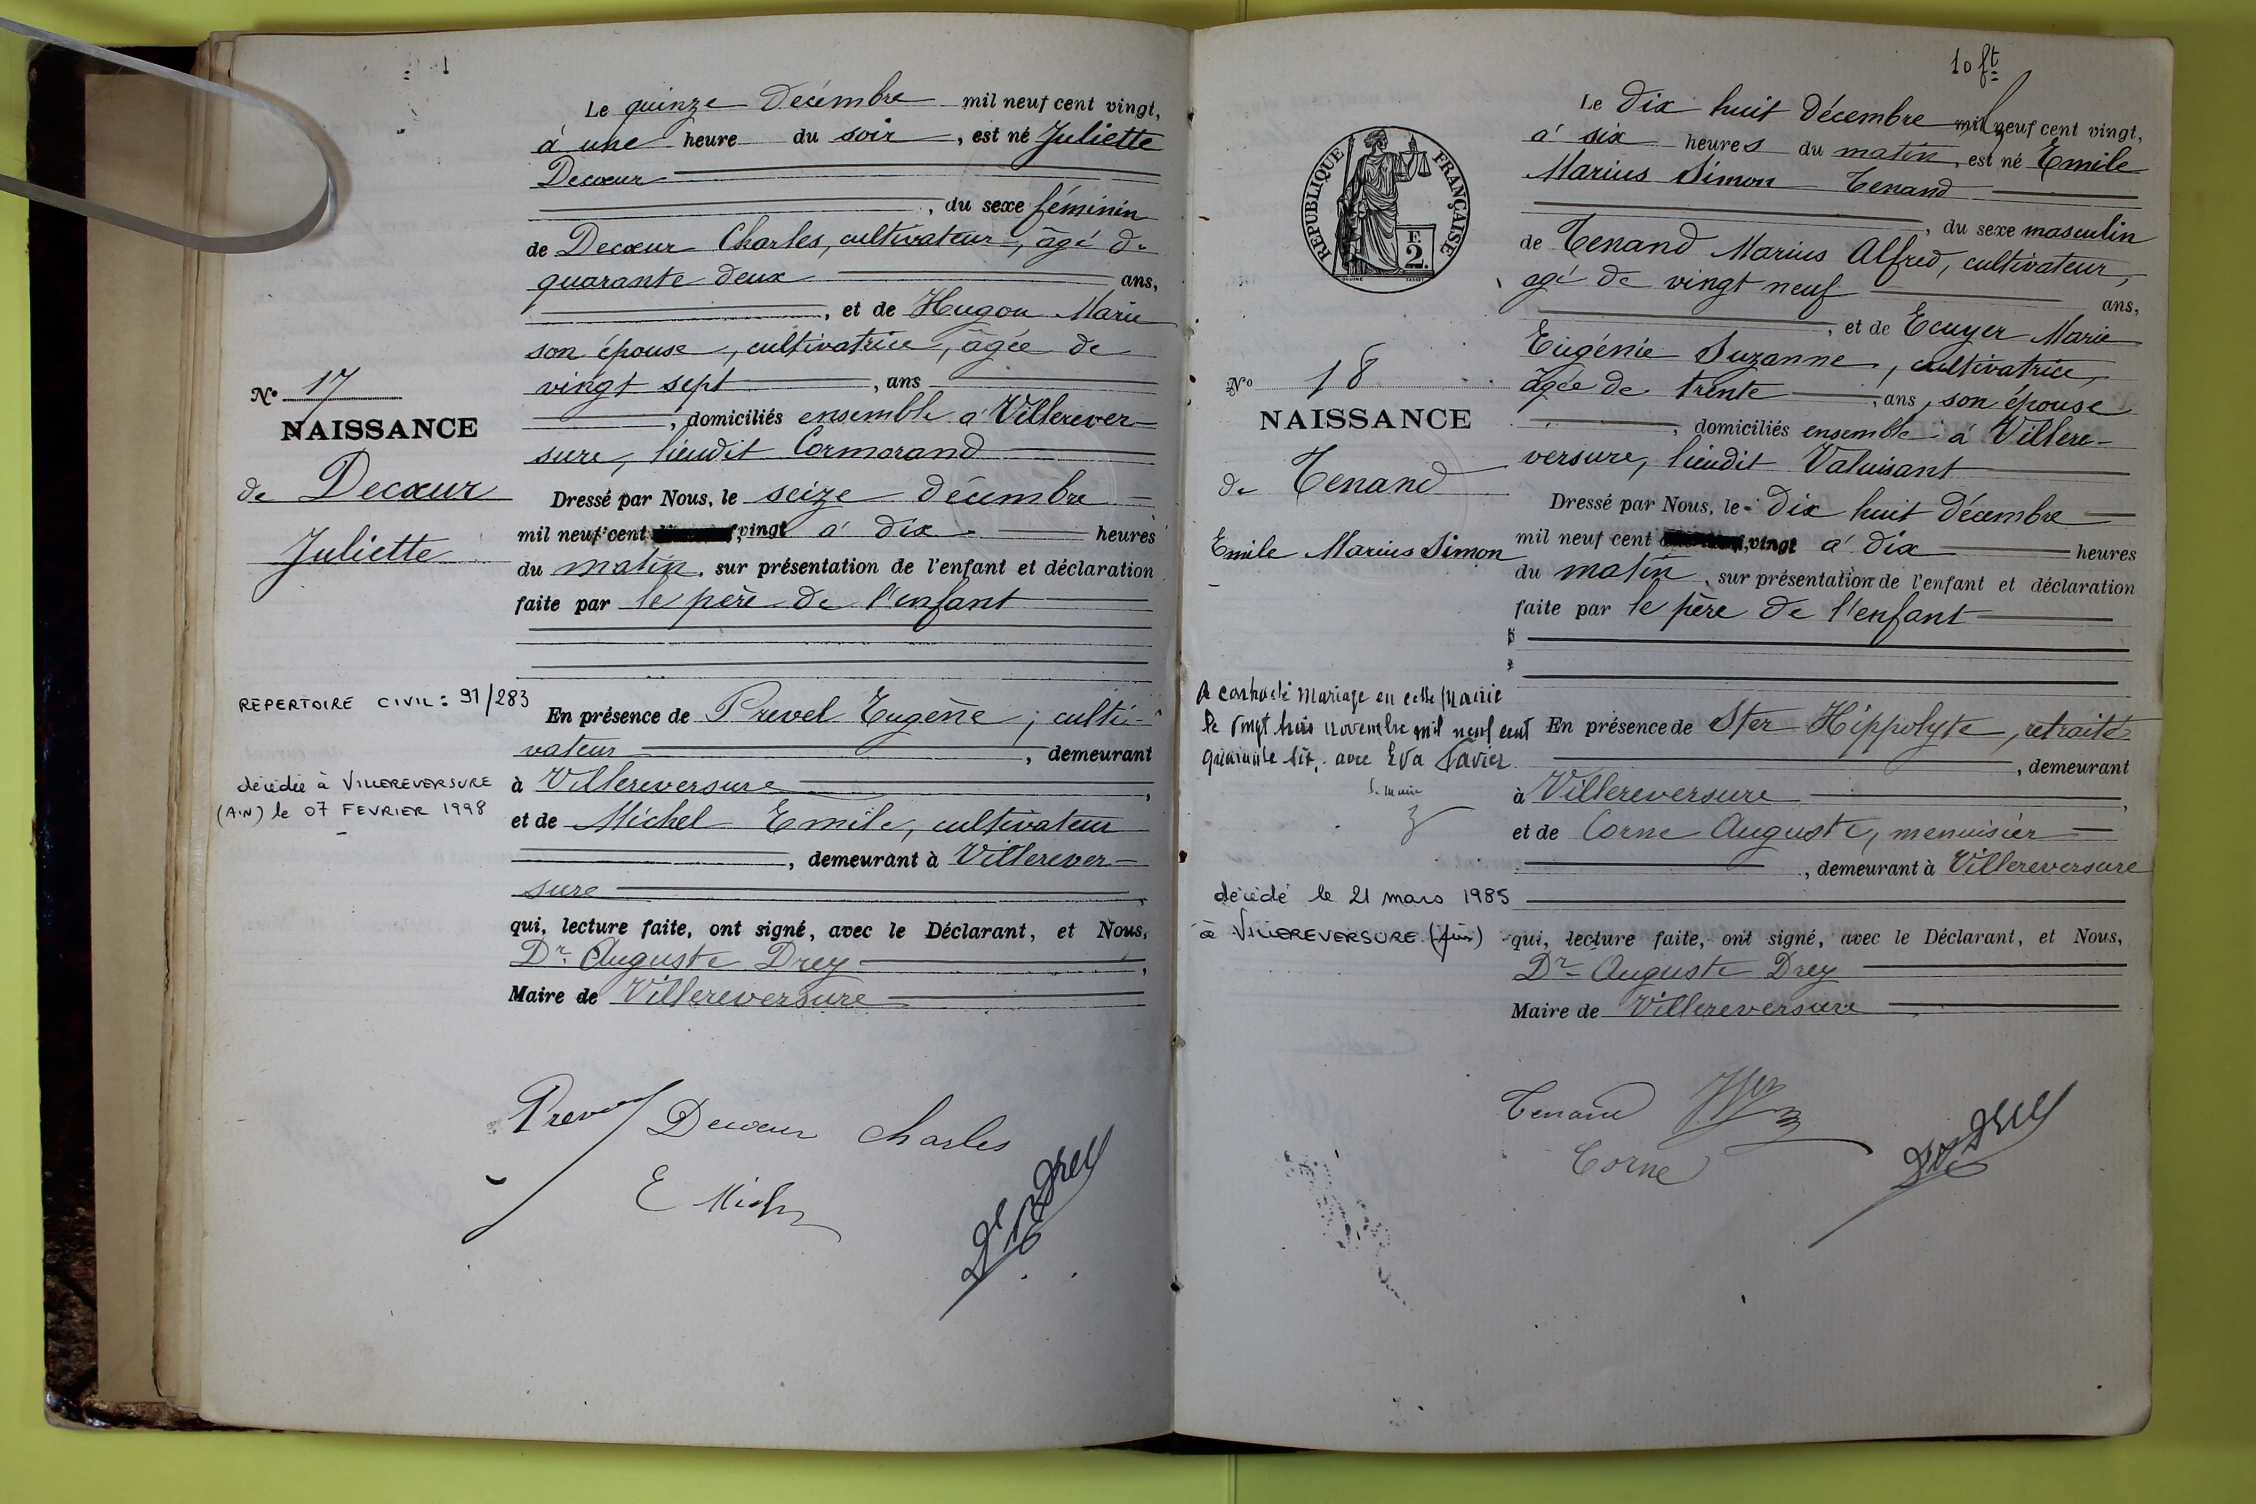 Le quinze Décembre mil neuf cent vingt,
à une heure du soir, est né Juliette
Decœur
, du sexe féminin
de Decœur Charles, cultivateur, âgé de
quarante deux ans,
, et de Hugon Marie
son épouse, cultivatrice, âgée de
vingt sept, ans
, domiciliés ensemble à Villerever-
sure, lieudit Cormorand
Dressé par Nous, le seize décembre
mil neuf cent vingt à dix heures
du matin, sur présentation de l'enfant et déclaration
faite par le père de l'enfant
En présence de Prevel Eugène, culti-
vateur, demeurant
à Villereversure,
et de Michel Emile, cultivateur
, demeurant à Villerever-
sure,
qui, lecture faite, ont signé, avec le Déclarant, et Nous,
Dr. Auguste Drey,
Maire de Villereversure
N° 17
NAISSANCE
de Decœur
Juliette
REPERTOIRE CIVIL : 91/283
décédée à VILLEREVERSURE
(AIN) le 07 FEVRIER 1998
Prevel Decœur Charles
E Michel
Dr A Drey
10 ft
Le dix huit décembre mil neuf cent vingt,
à six heures du matin, est né Emile
Marius Simon Tenand
, du sexe masculin
de Tenand Marius Alfred, cultivateur,
agé de vingt neuf ans,
, et de Ecuyer Marie
Eugénie Suzanne, cultivatrice,
âgée de trente, ans, son épouse
, domiciliés ensemble à Villere-
versure, lieudit Valuisant
Dressé par Nous, le dix huit décembre
mil neuf cent vingt à dix heures
du matin, sur présentation de l'enfant et déclaration
faite par le père de l'enfant
En présence de Ster Hippolyte, retraité
, demeurant
à Villereversure,
et de Corne Auguste, menuisier
, demeurant à Villereversure
qui, lecture faite, ont signé, avec le Déclarant, et Nous,
Dr Auguste Drey
Maire de Villereversure
REPUBLIQUE FRANÇAISE
F.
2.
N° 18
NAISSANCE
de Tenand
Emile Marius Simon
A contracté mariage en cette mairie
le vingt trois novembre mil neuf cent
quarante six, avec Eva
Le maire
décédé le 21 mars 1985
à VILLEREVERSURE (Ain)
Tenand Ster
Corne
Dr A Drey